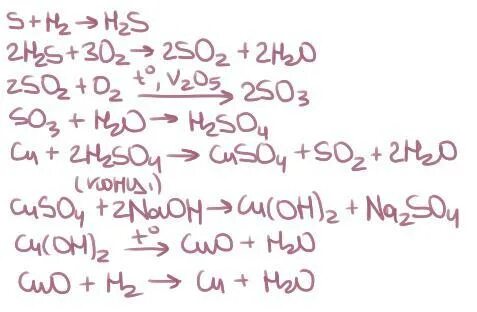 S + H₂ → H₂S
2H₂S + 3O₂ → 2SO₂ + 2H₂O
2SO₂ + O₂ t°, V₂O₅ → 2SO₃
SO₃ + H₂O → H₂SO₄
Cu + 2H₂SO₄ → CuSO₄ + SO₂ + 2H₂O
(конц.)
CuSO₄ + 2NaOH → Cu(OH)₂ + Na₂SO₄
Cu(OH)₂ t° → CuO + H₂O
CuO + H₂ → Cu + H₂O